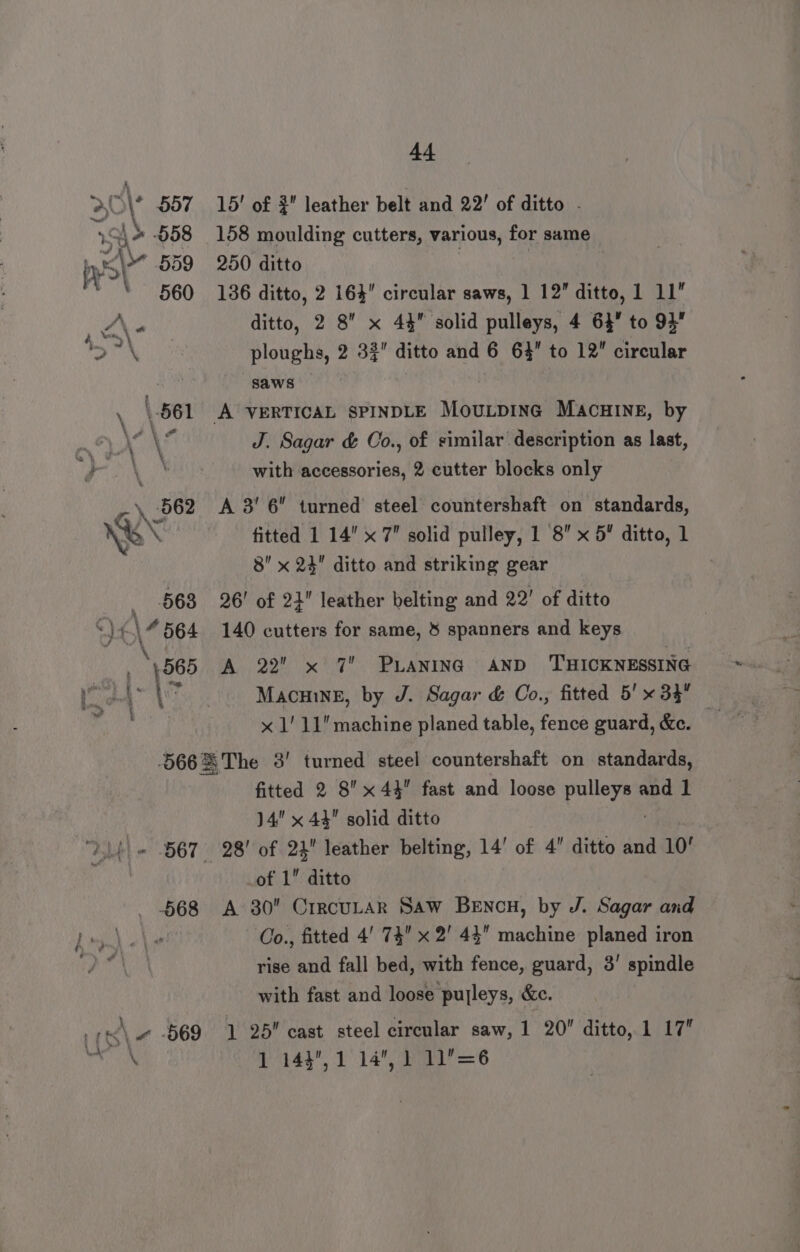 44
557 15' of ¾" leather belt and 22' of ditto
558 158 moulding cutters, various, for same
559 250 ditto
560 136 ditto, 2 16½" circular saws, 1 12" ditto, 1 11"
ditto, 2 8" × 4½" solid pulleys, 4 6½" to 9½"
ploughs, 2 3¾" ditto and 6 6½" to 12" circular
saws
561 A VERTICAL SPINDLE MOULDING MACHINE, by
J. Sagar & Co., of similar description as last,
with accessories, 2 cutter blocks only
562 A 3' 6" turned steel countershaft on standards,
fitted 1 14" × 7" solid pulley, 1 8" × 5" ditto, 1
8" × 2½" ditto and striking gear
563 26' of 2¼" leather belting and 22' of ditto
564 140 cutters for same, 8 spanners and keys
565 A 22" × 7" PLANING AND THICKNESSING
MACHINE, by J. Sagar & Co., fitted 5' × 3½"
× 1' 11" machine planed table, fence guard, &c.
566 The 3' turned steel countershaft on standards,
fitted 2 8" × 4½" fast and loose pulleys and 1
14" × 4½" solid ditto
567 28' of 2½" leather belting, 14' of 4" ditto and 10'
of 1" ditto
568 A 30" CIRCULAR SAW BENCH, by J. Sagar and
Co., fitted 4' 7½" × 2' 4½" machine planed iron
rise and fall bed, with fence, guard, 3' spindle
with fast and loose pulleys, &c.
569 1 25" cast steel circular saw, 1 20" ditto, 1 17"
1 14½", 1 14", 1 11"=6